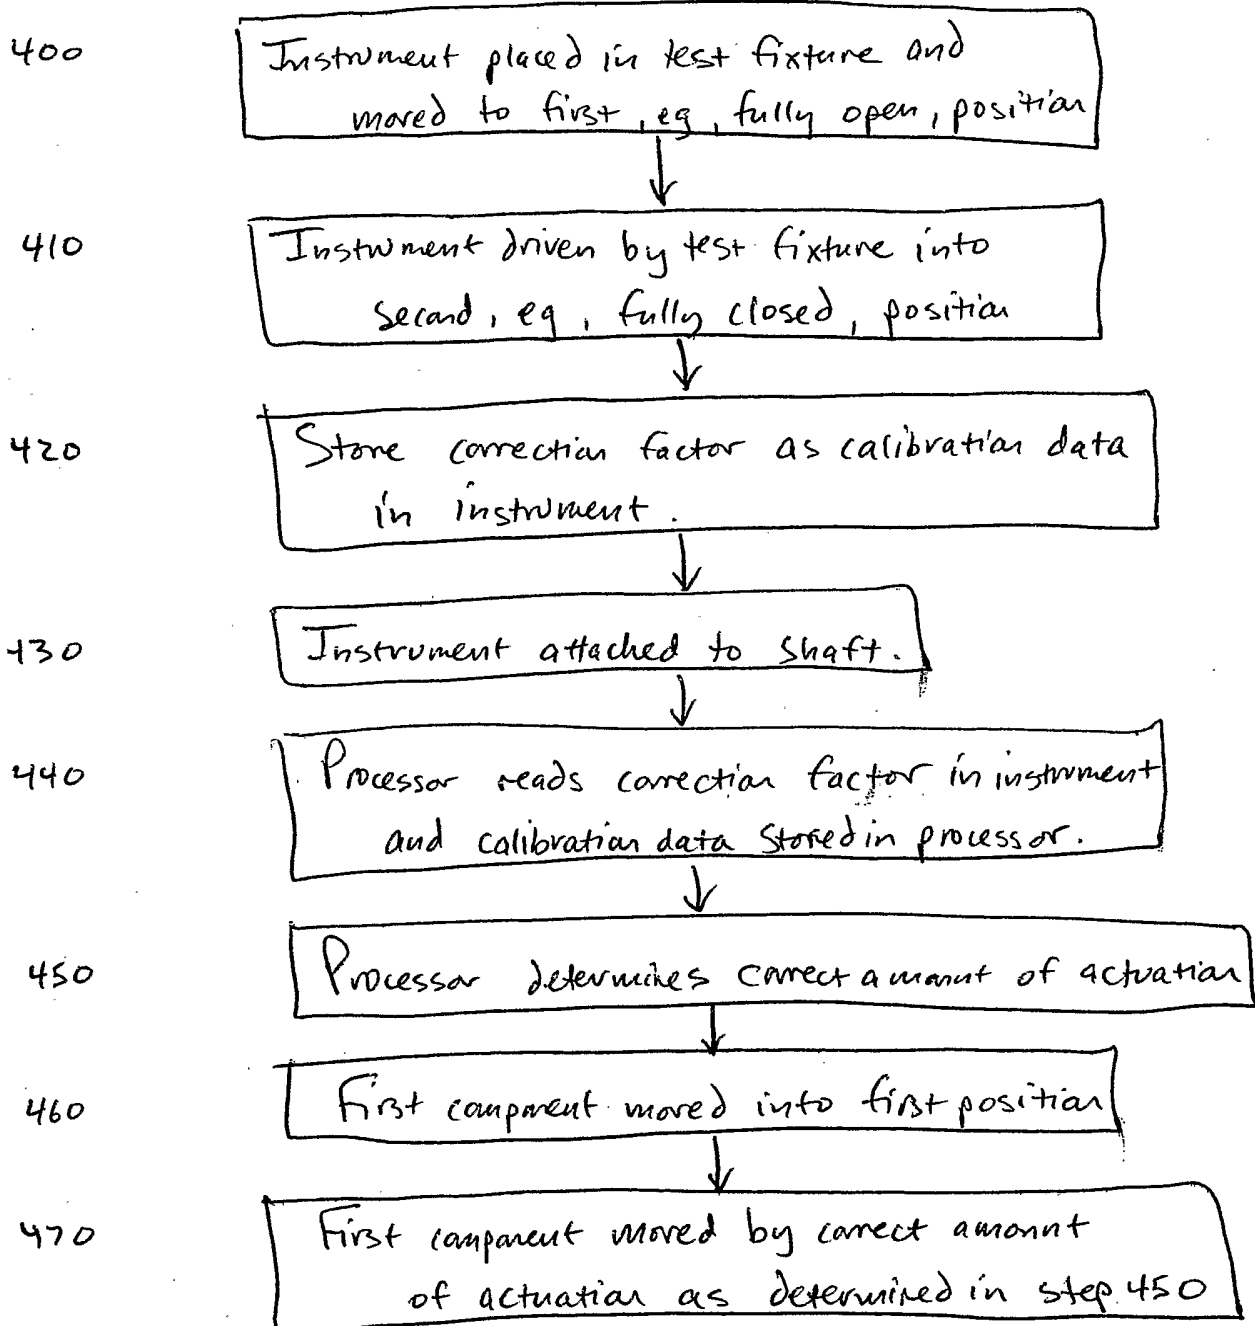 400
Instrument placed in test fixture and
moved to first, eg, fully open, position
410
Instrument driven by test fixture into
second, eg, fully closed, position
420
Store correction factor as calibration data
in instrument.
430
Instrument attached to shaft.
440
Processor reads correction factor in instrument
and calibration data stored in processor.
450
Processor determines correct amount of actuation
460
First component moved into first position
470
First component moved by correct amount
of actuation as determined in step 450